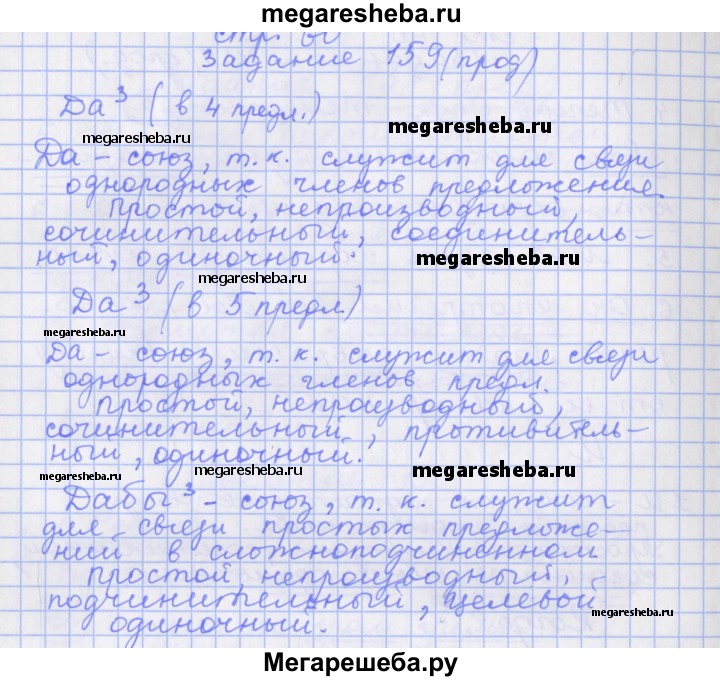 megaresheba.ru
стр. 60
Задание 159 (прод)
Да³ (в 4 предл.)
megaresheba.ru
megaresheba.ru
Да - союз, т. к. служит для связи
однородных членов предложения.
Простой, непроизводный,
сочинительный, соединитель-
ный, одиночный.
megaresheba.ru
megaresheba.ru
Да³ (в 5 предл.)
megaresheba.ru
Да - союз, т. к. служит для связи
однородных членов предл.
Простой, непроизводный,
сочинительный, противитель-
ный, одиночный.
megaresheba.ru
megaresheba.ru
megaresheba.ru
Дабы³ - союз, т. к. служит
для связи простых предложе-
ний в сложноподчиненном
Простой, непроизводный,
подчинительный, целевой
одиночный.
megaresheba.ru
Мегарешеба.ру